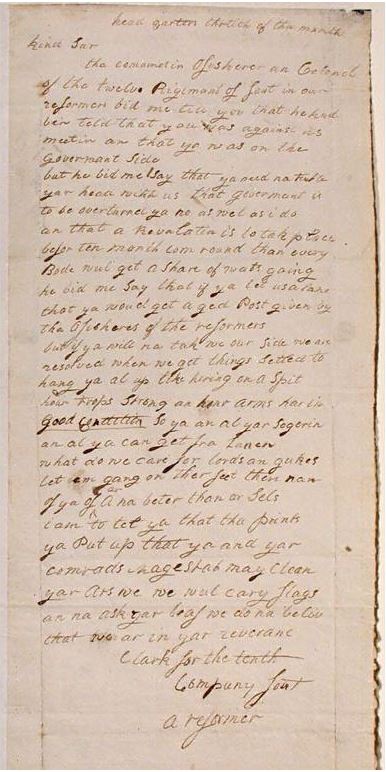 head qarters thrtich of tha month
Kind Sur
tha comometin Ofisherer an Colonel
of the twelve Rigimant of foot in our
reformers bid me till you that he had
ben told that you was against us
meetin an that ya was on the
Goverment Side
but he bid me Say that ya need na
yar head with us that goverment is
to be overturned ya no as wel as i do
an that a Revalatia is to tak place
befor ten month com round than every
Bode wul get a Share of wats gaing
he bid me Say that if ya let us alane
that ya woud get a ged Post given by
tha Ofisheres of the reformers
but if ya will na tak we our Side we are
resolved when we get things Setled to
hang ya al up like hiring on a Spit
hour trops Strong an hour arms har in
Good contitin So ya an al yar Sogerin
an al ya can get fra Lonen
what do we care for lords an gukes
let em gang on ther feet then nan
of ya ar of A na beter than ar Sels
i am to tel ya that tha prints
ya Put up that ya and yar
comrads magestab may Clean
yar Ars we we wul cary flags
an na ask yar leaf we do na beliv
that we ar in yar reveranc
Clark for the tenth
Company foot
a reformer